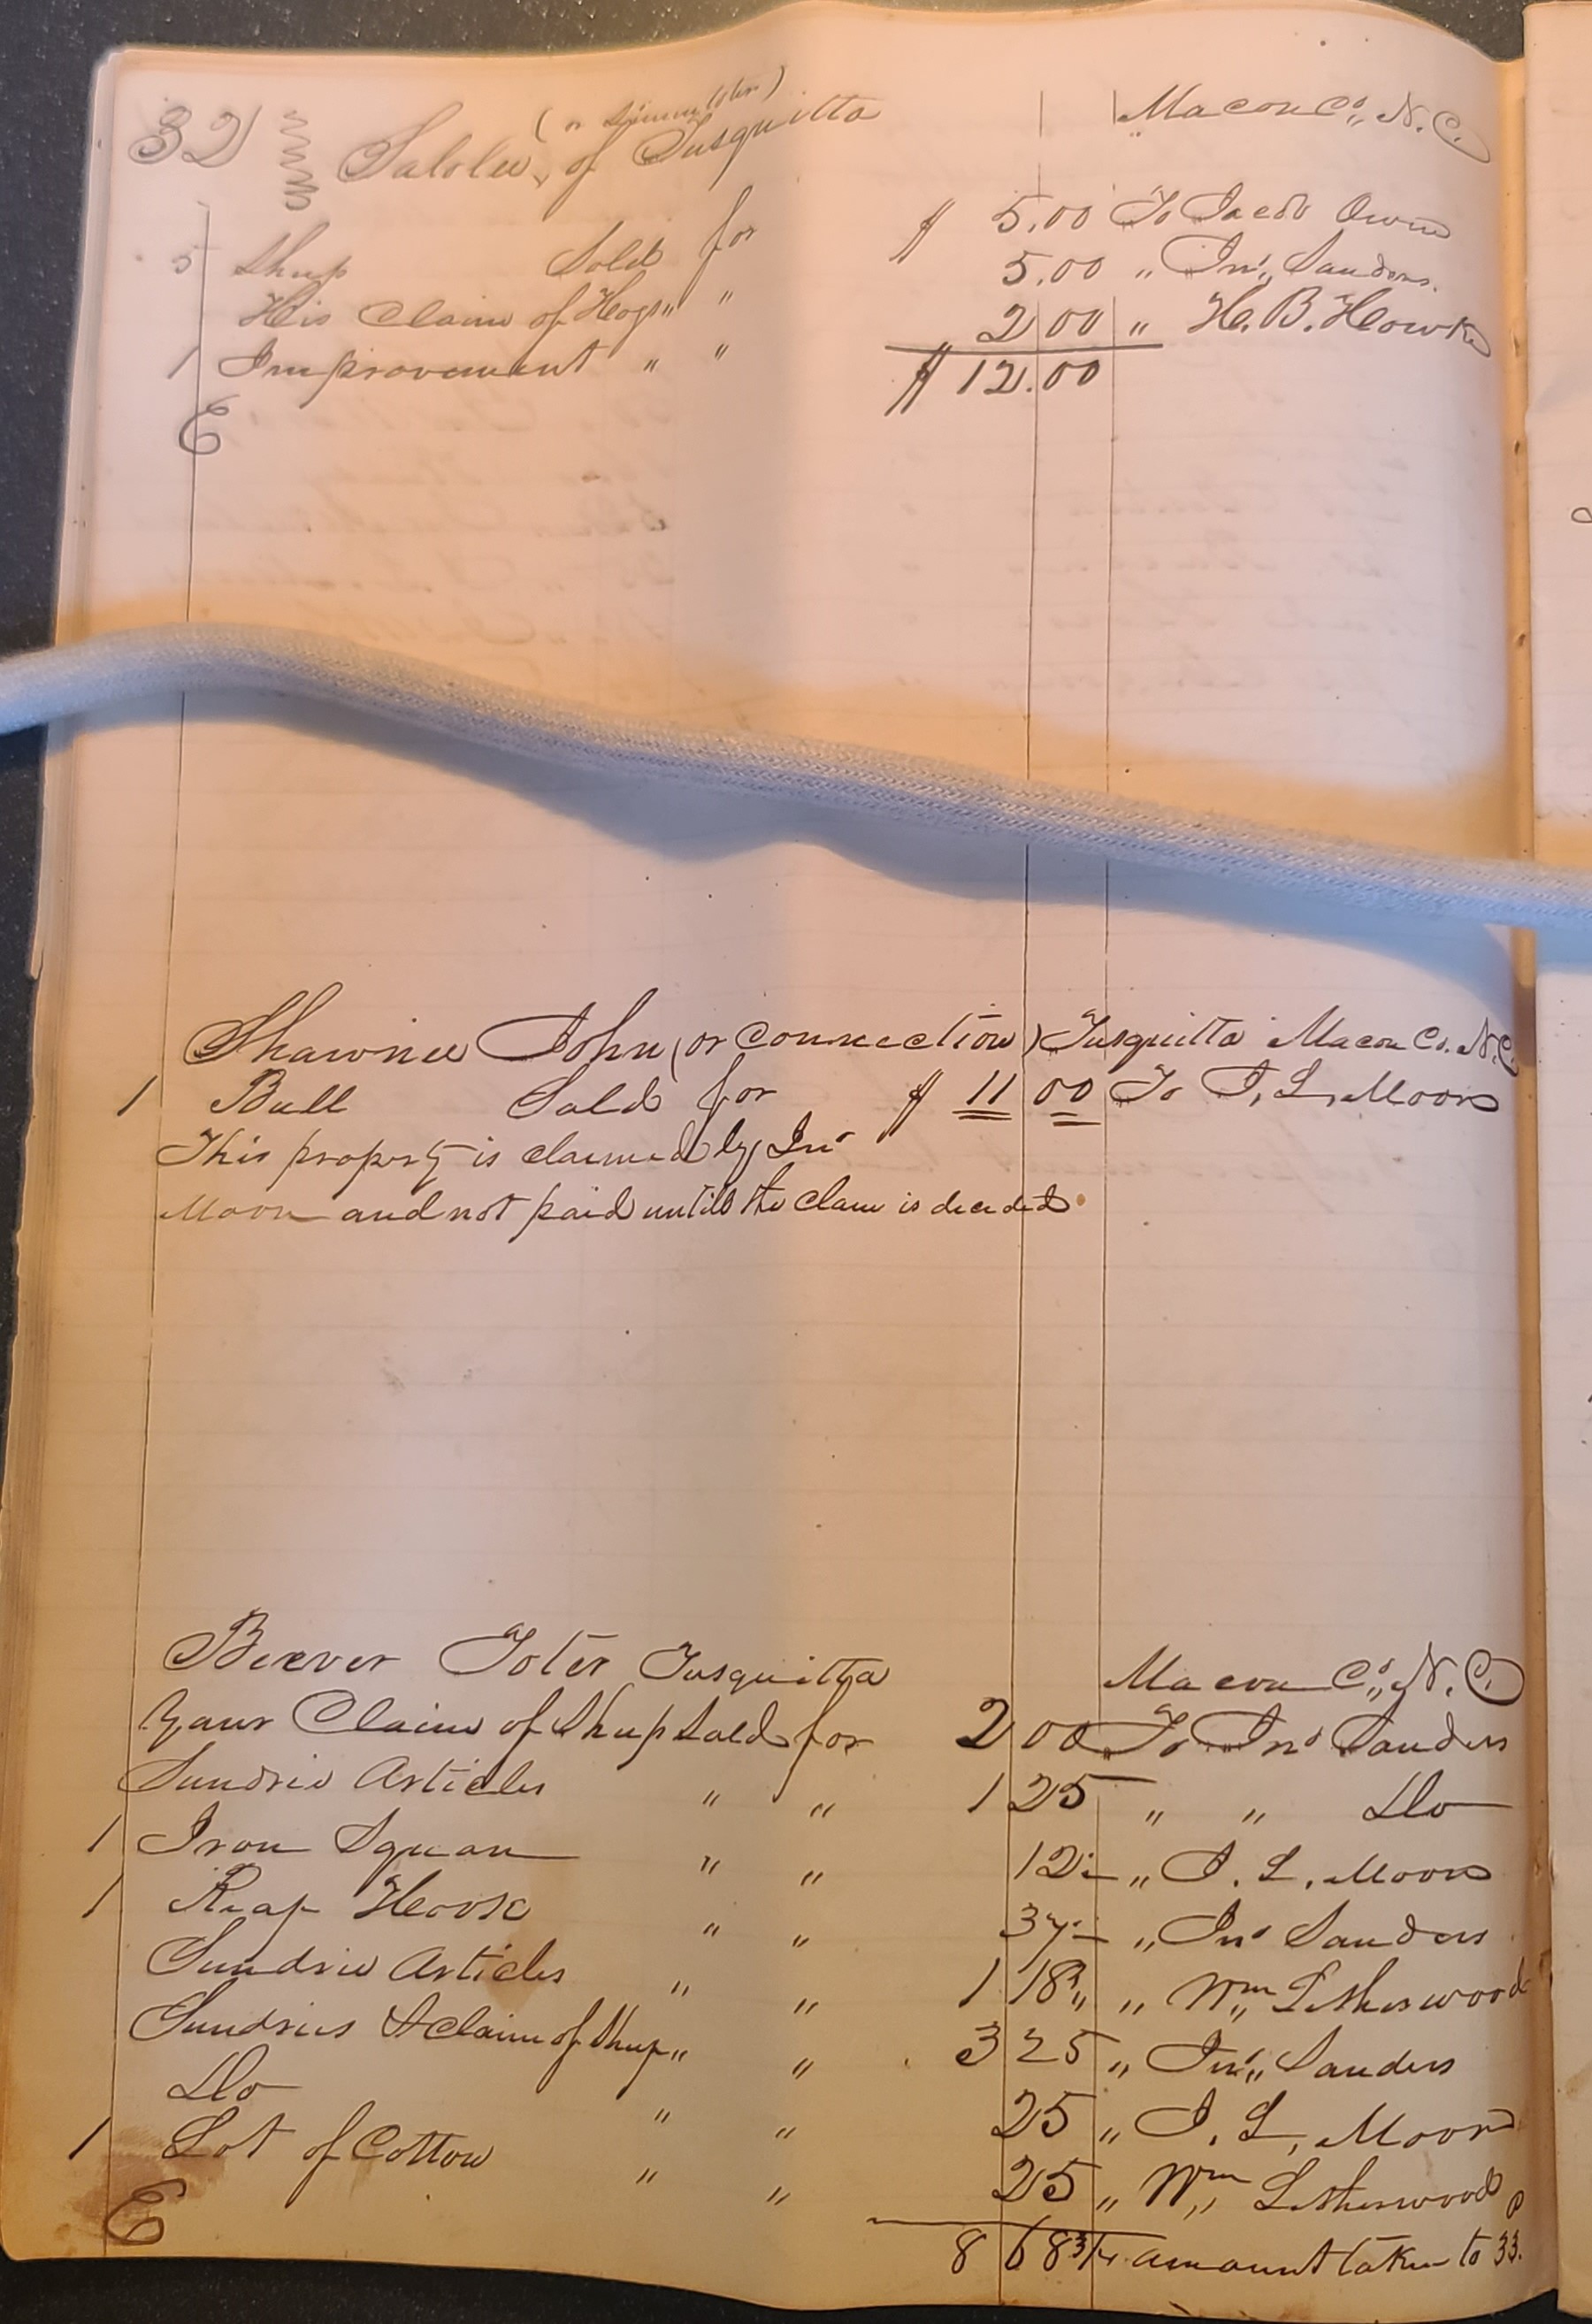 32
(or Simmster)
Salolee, of Tusquitta Macon Co,, N.C.
5 Sheep Sold for $ 5.00 To Jacob Owen
His Claim of Hogs " " 5.00 " Jno,, Sanders.
1 Improvement " " 2 00 " H. B. Howk
$ 12.00
E
Shawnee John (or connection) Tusquitta Macon Co. N.C.
1 Bull Sold for $ 11 00 To J. L. Moore
This property is claimed by Jno
Moore and not paid untill the claim is decided
Beaver Toter Tusquitta Macon Co,, N.C.
Your Claim of Sheep Sold for 2 00 To Jno Sanders
Sundrie Articles " " 1 25 " " Do
1 Iron Square " " 12½ " J. L. Moore
1 Reap Hook " " 37½ " Jno Sanders
Sundrie Articles " " 1 18¾ " Wm,, Letherwood
Sundries & Claim of Sheep " " 3 25 " Jno,, Sanders
Do " " 25 " J. L. Moore
1 Lot of Cotton " " 25 " Wm,, Letherwood
E
8 68 3/4 amount taken to P 33.